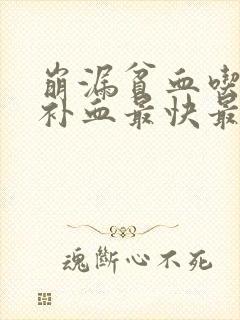 崩漏貧血喫
补血最快最
魂斷心不死